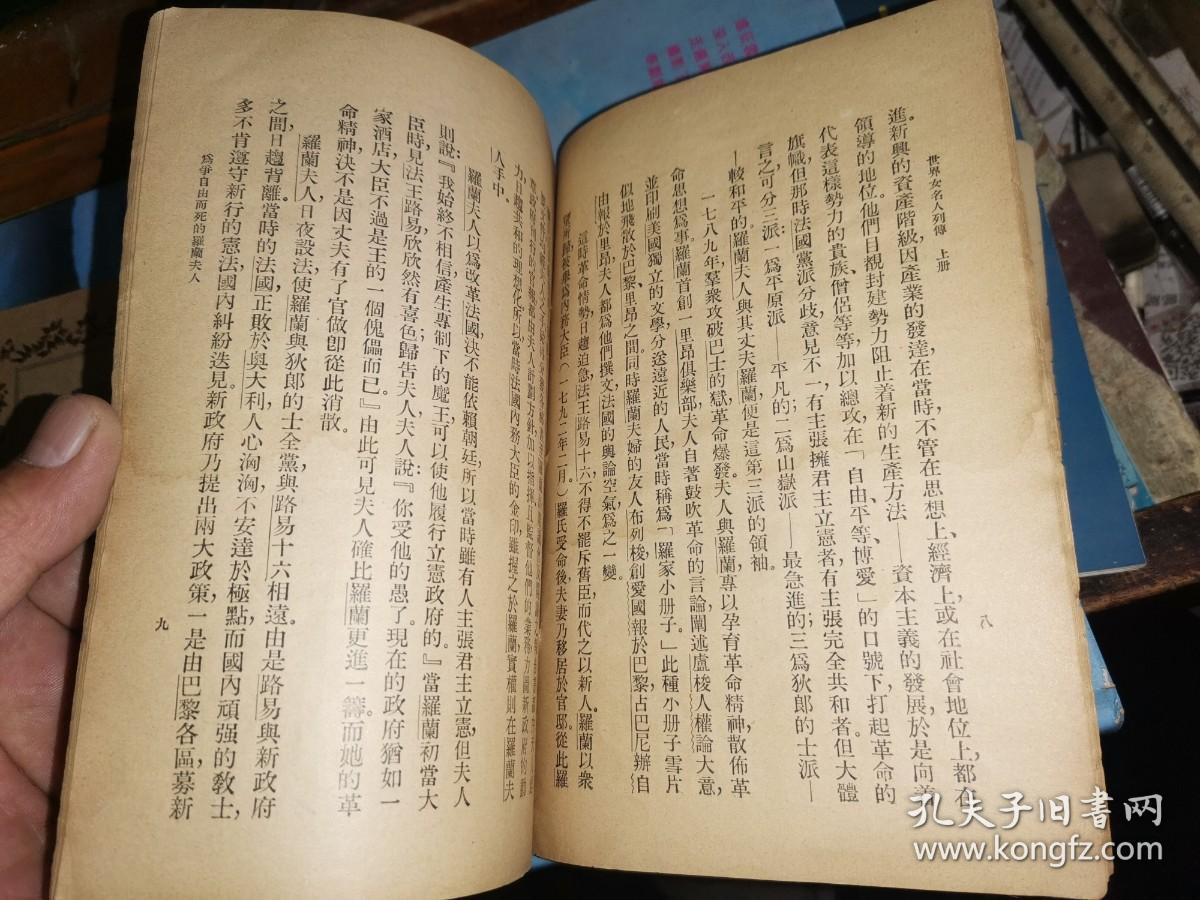 世界女名人列傳　上册
八
進。新興的資產階級，因產業的發達，在當時，不管在思想上，經濟上，或在社會地位上，都在
領導的地位。他們目覩封建勢力阻止着新的生產方法——資本主義的發展，於是向着
代表這樣勢力的貴族、僧侶等等加以總攻，在「自由、平等、博愛」的口號下，打起革命的
旗幟。但那時法國黨派分歧，意見不一，有主張擁君主立憲者，有主張完全共和者。但大體
言之，可分三派：一爲平原派——平凡的；二爲山嶽派——最急進的；三爲狄郎的士派—
—較和平的。羅蘭夫人與其丈夫羅蘭，便是這第三派的領袖。
一七八九年，羣衆攻破巴士的獄，革命爆發。夫人與羅蘭專以孕育革命精神，散佈革
命思想爲事。羅蘭首創一里昂俱樂部，夫人自著鼓吹革命的言論，闡述盧梭人權論大意，
並印刷美國獨立的文學，分送遠近的人民，當時稱爲「羅家小册子」。此種小册子雪片
似地飛散於巴黎、里昂之間。同時羅蘭夫婦的友人布列梭創愛國報於巴黎，占巴尼辦自
由報於里昂，夫人都爲他們撰文，法國的輿論空氣爲之一變。
這時革命情勢日趨迫急，法王路易十六不得不罷斥舊臣而代之以新人。羅蘭以衆
被舉爲內務大臣（一七九二年二月）。羅氏受命後，夫妻乃移居於官邸。從此羅
夫人計劃方針，加以指揮，且監督他們的業務，力圖新政府的
力，日趨共和的理想化。所以當時法國內務大臣的金印，雖握之於羅蘭，實權則在羅蘭夫
人手中。
羅蘭夫人以爲改革法國，決不能依賴朝廷，所以當時雖有人主張君主立憲，但夫人
則說：『我始終不相信，產生專制下的魔王，可以使他履行立憲政府的。』當羅蘭初當大
臣時，見法王路易欣欣然有喜色，歸告夫人；夫人說：『你受他的愚了。現在的政府猶如一
家酒店，大臣不過是王的一個傀儡而已。』由此可見夫人確比羅蘭更進一籌，而她的革
命精神，決不是因丈夫有了官做卽從此消散。
羅蘭夫人日夜設法使羅蘭與狄郎的士全黨與路易十六相遠。由是路易與新政府
之間，日趨背離。當時的法國，正敗於奧大利，人心洶洶不安達於極點，而國內頑强的教士，
多不肯遵守新行的憲法，國內糾紛迭見。新政府乃提出兩大政策：一是由巴黎各區，募新
爲爭自由而死的羅蘭夫人
九
孔夫子旧书网
www.kongfz.com